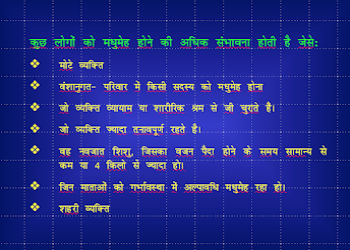 कुछ लोगों को मधुमेह होने की अधिक संभावना होती है जेसे:
मोटे व्यक्ति
वंशानुगत- परिवार में किसी सदस्य को मधुमेह होना
जो व्यक्ति व्यायाम या शारीरिक श्रम से जी चुराते है।
जो व्यक्ति ज्यादा तनावपूर्ण रहते है।
वह नवजात शिशु, जिसका वजन पैदा होने के समय सामान्य से
कम या 4 किलो से ज्यादा हो।
जिन माताओं को गर्भावस्था में अल्पावधि मधुमेह रहा हो।
शहरी व्यक्ति